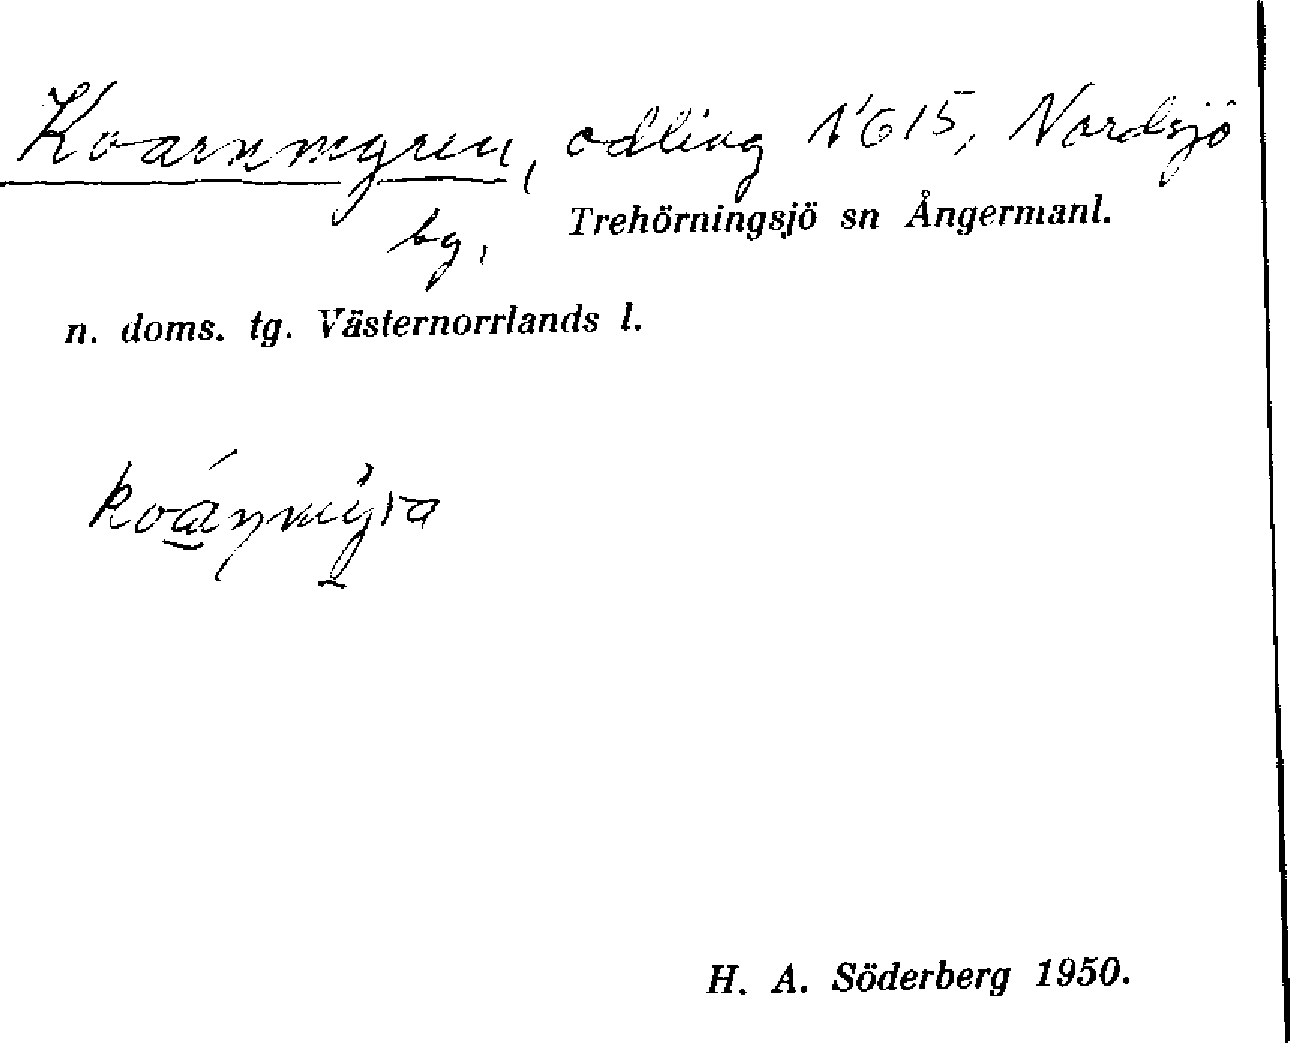 Kvarnmyren, odling 1'615, Nordsjö
by, Trehörningsjö sn Ångermanl.
n. doms. tg. Västernorrlands l.
H. A. Söderberg 1950.